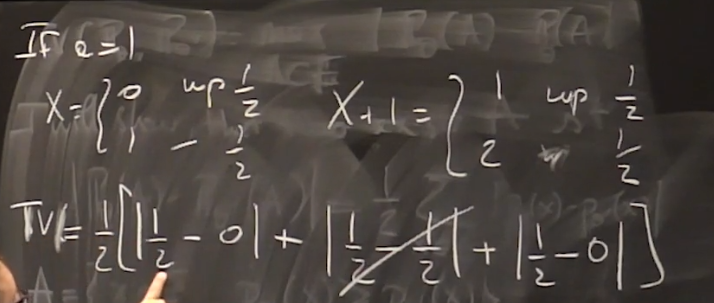 If a=1
X = { 0 wp 1/2 X+1 = { 1 wp 1/2
1 - 1/2 2 " 1/2
TV = 1/2 [ |1/2 - 0| + |1/2 - 1/2| + |1/2 - 0| ]